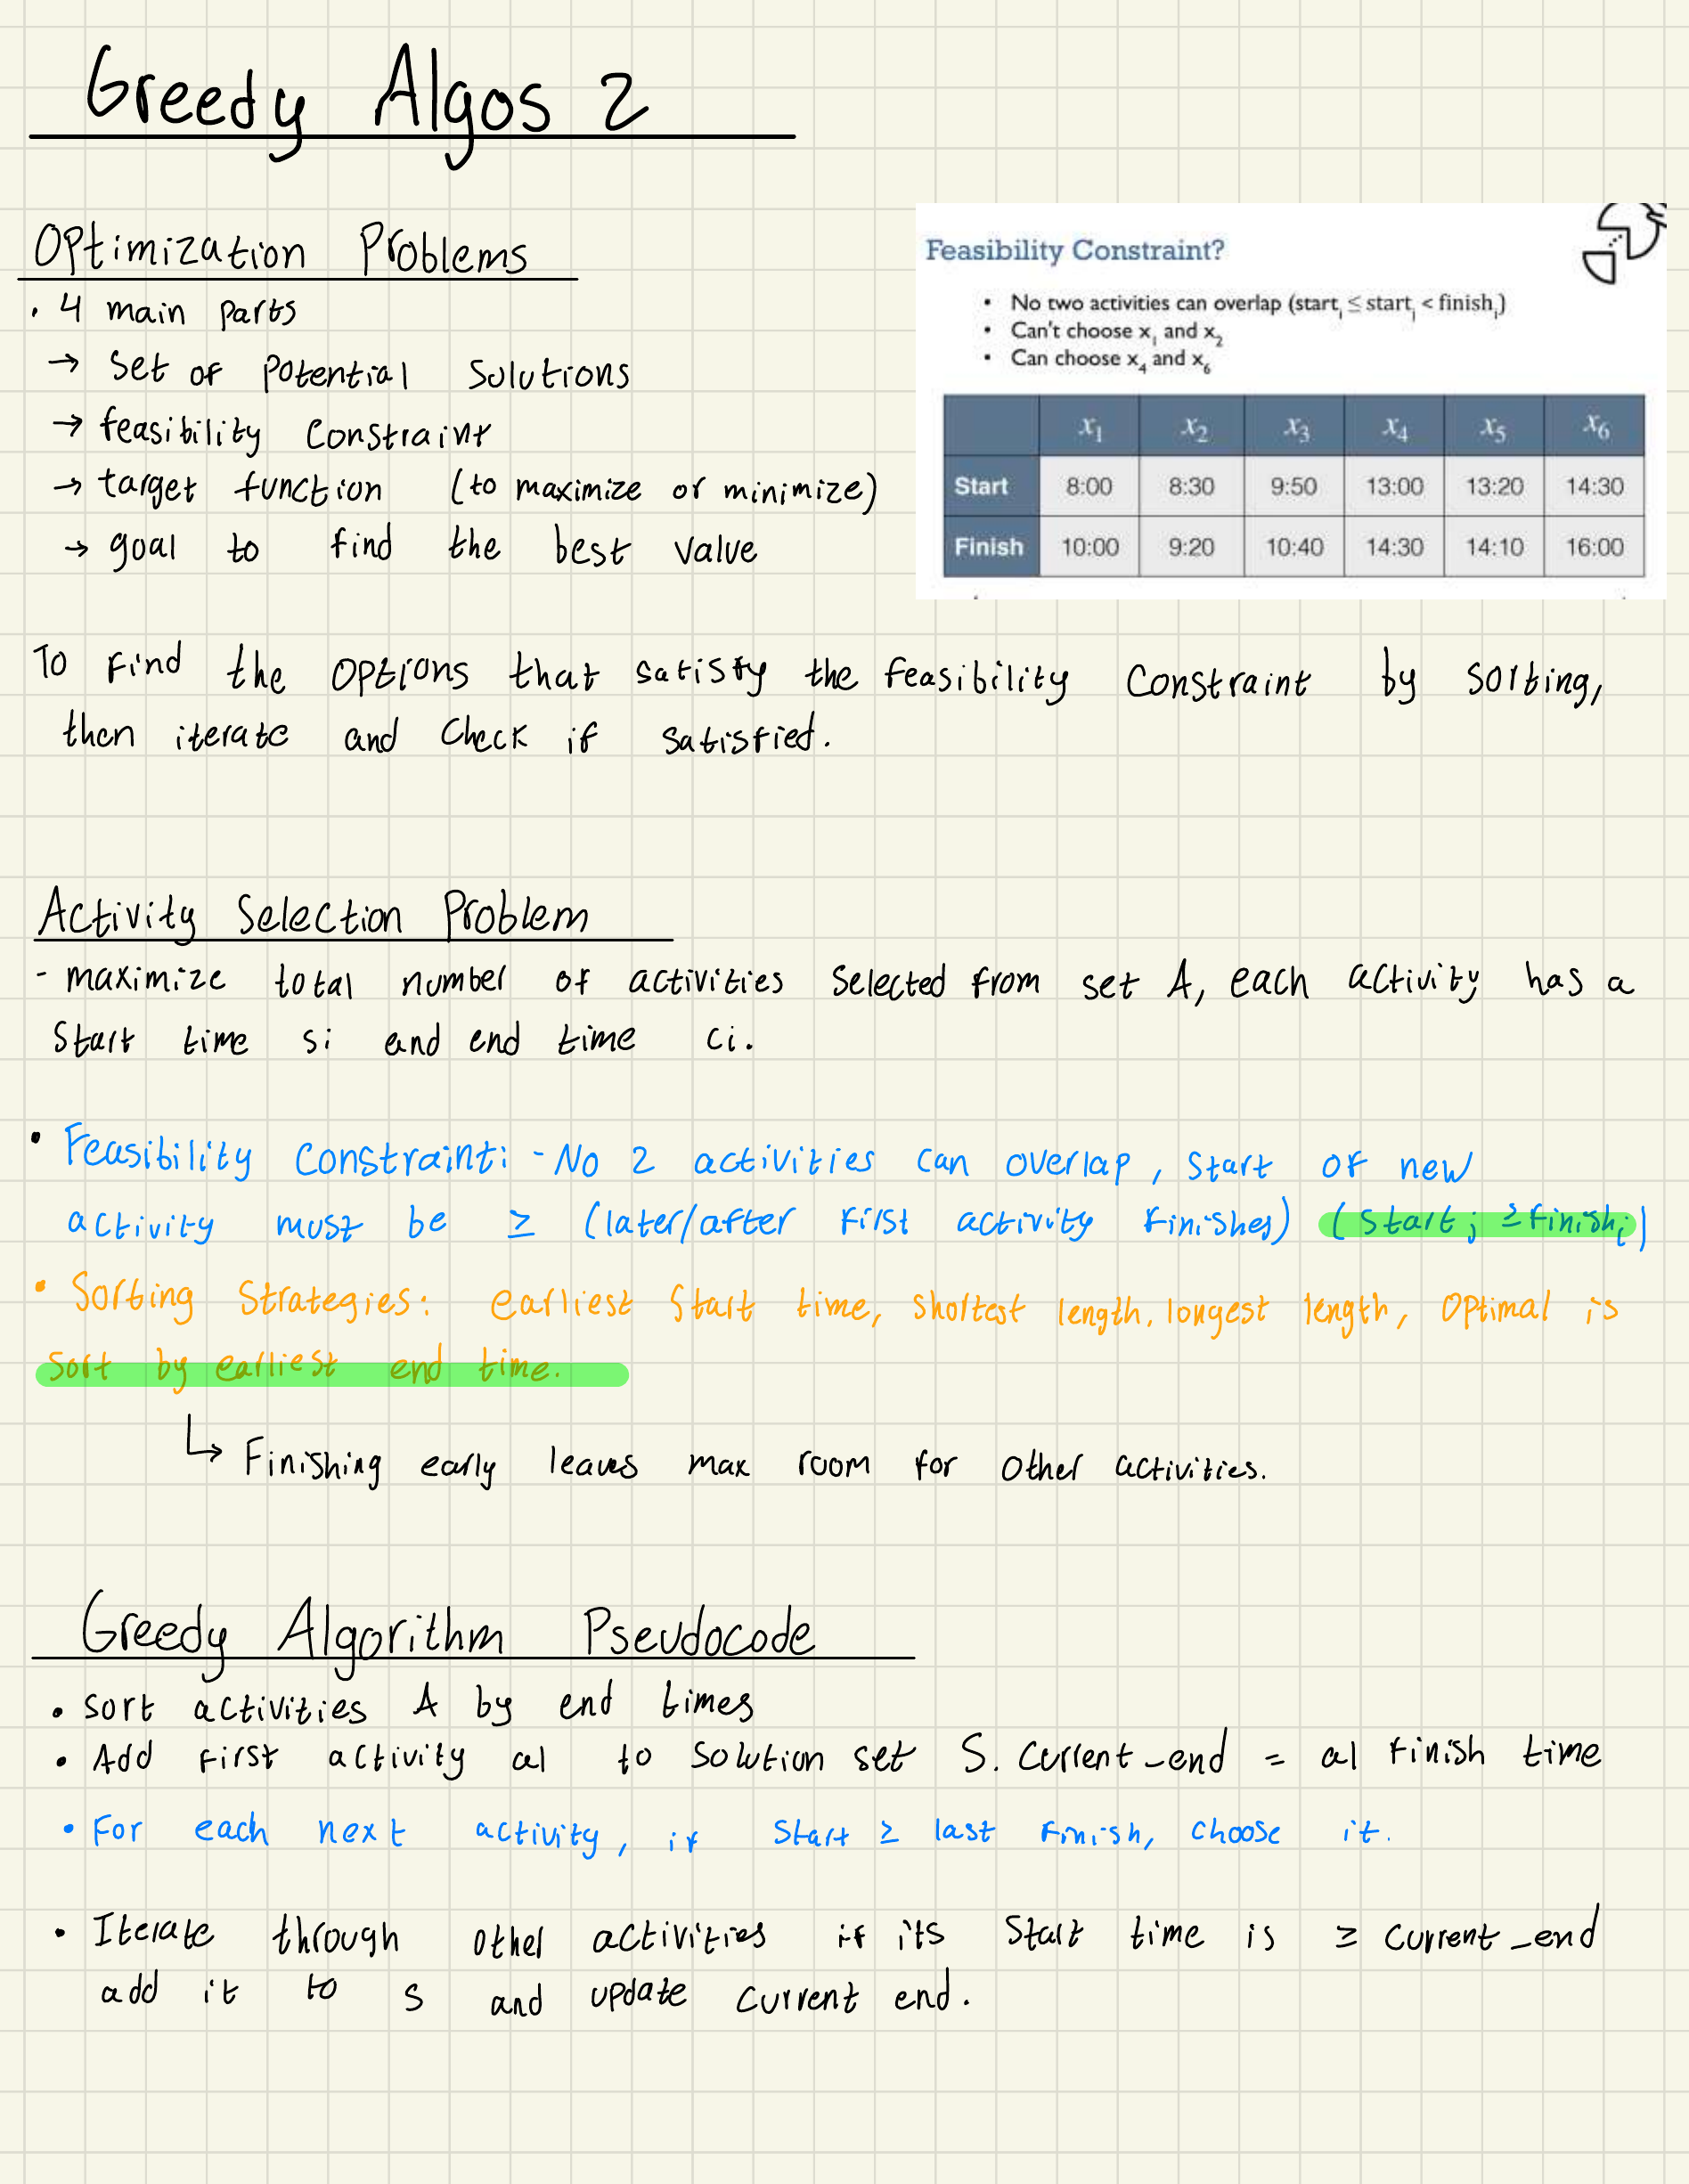 Greedy Algos 2
Optimization Problems
• 4 main parts
→ set of potential solutions
→ feasibility constraint
→ target function (to maximize or minimize)
→ goal to find the best value
Feasibility Constraint?
• No two activities can overlap (startᵢ ≤ startⱼ < finishᵢ)
• Can't choose x₁ and x₂
• Can choose x₄ and x₆
x₁ x₂ x₃ x₄ x₅ x₆
Start 8:00 8:30 9:50 13:00 13:20 14:30
Finish 10:00 9:20 10:40 14:30 14:10 16:00
To find the options that satisfy the feasibility constraint by sorting,
then iterate and check if satisfied.
Activity Selection Problem
- maximize total number of activities selected from set A, each activity has a
start time si and end time ci.
• Feasibility constraint: - No 2 activities can overlap, start of new
activity must be ≥ (later/after first activity finishes) (startⱼ ≥ finishᵢ)
• Sorting strategies: earliest start time, shortest length, longest length, optimal is
sort by earliest end time.
↳ Finishing early leaves max room for other activities.
Greedy Algorithm Pseudocode
• sort activities A by end times
• Add first activity a1 to solution set S. current_end = a1 finish time
• For each next activity, if start ≥ last finish, choose it.
• Iterate through other activities if its start time is ≥ current_end
add it to S and update current end.